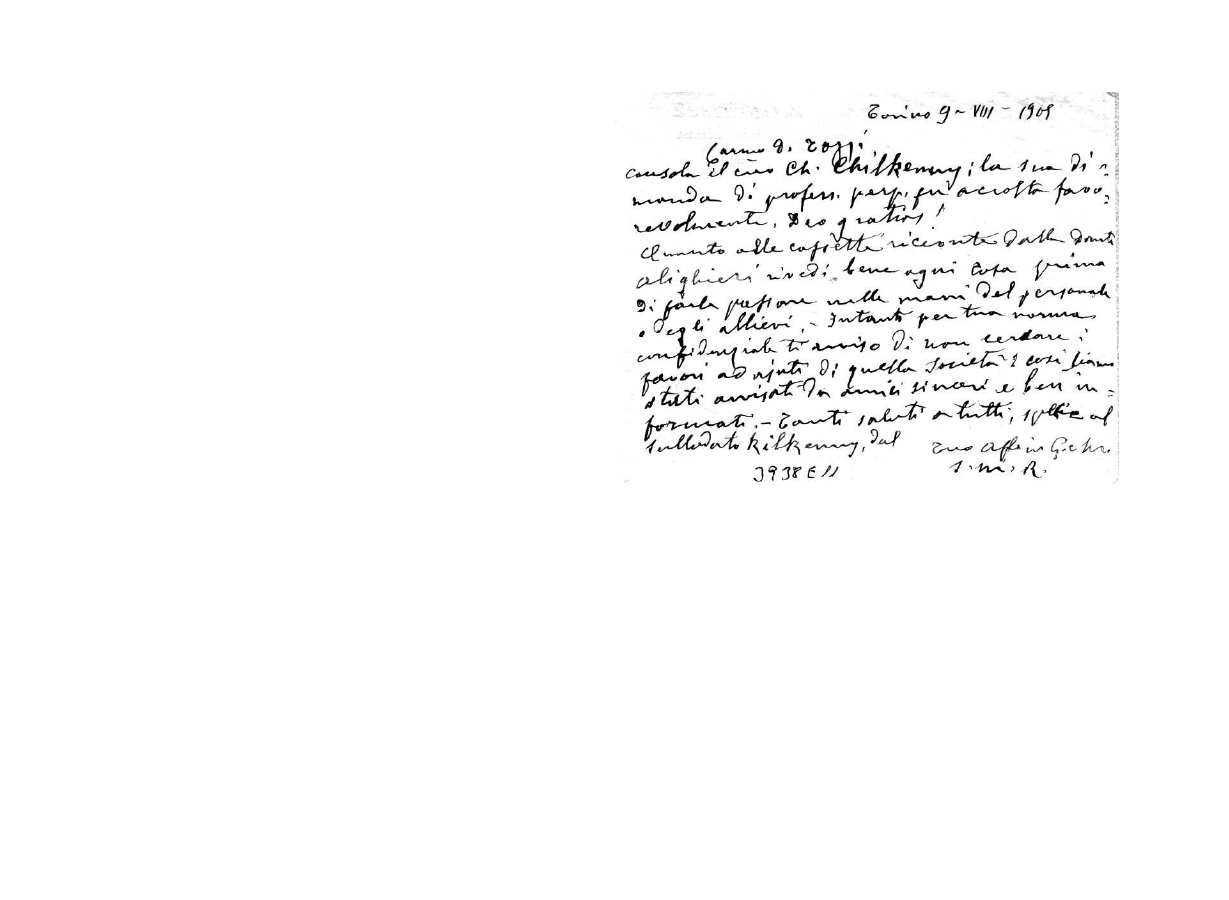 Torino 9 - VIII - 1905
Carmo D. Tozzi
consola il tuo Ch. Chilkenny; la sua di=
manda di profess. perp. fu accolta favo=
revolmente. Deo gratias!
Quanto alle cassette ricevute dalla Dante
Alighieri rivedi bene ogni cosa prima
di farla passare nelle mani del personale
o degli allievi. - Intanto per tua norma
confidenziale ti avviso di non cercare i
favori ad ajuti di quella Società: così siamo
stati avvisati da amici sinceri e ben in=
formati. - Tanti saluti a tutti, splte al
sullodato Kilkenny, dal tuo affmo in G. e M.
S. M. R.
3938 E 11